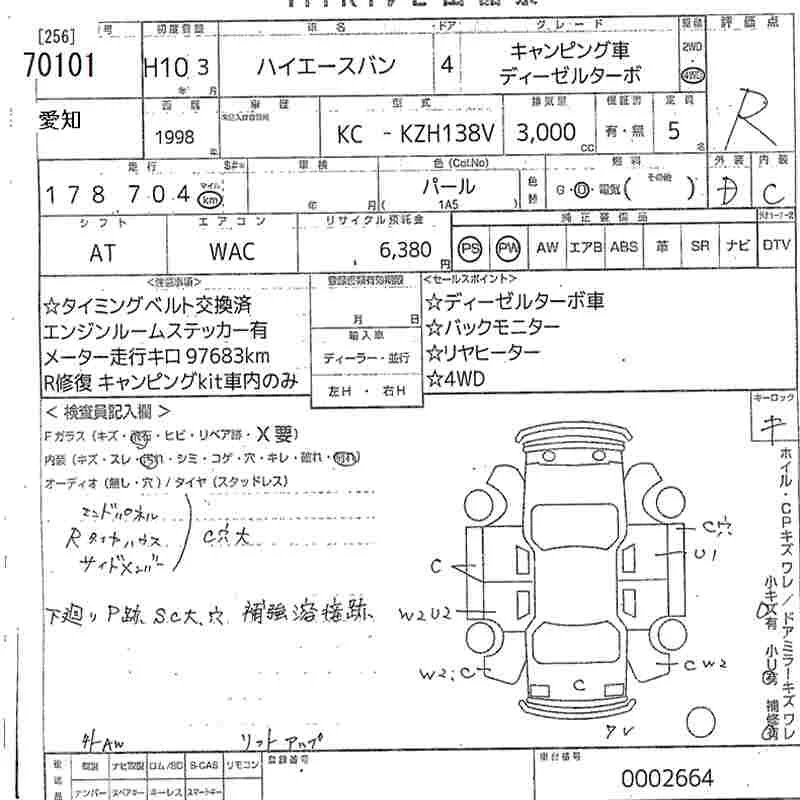 [256]
70101
初度登録 車名 ドア グレード 駆動 評価点
H10 3 年 月 ハイエースバン 4 キャンピング車 2WD
ディーゼルターボ 4WD
愛知
西暦 車歴 型式 排気量 保証書 定員
1998 年 KC - KZH138V 3,000 cc 有・無 5 名 R
走行 車検 色(Col.No) 燃料 外装 内装
178704 マイル km 年 月 パール ( 1A5 ) 色替 G・D・電気( その他 ) D C
シフト エアコン リサイクル預託金 純正装備品
AT WAC 6,380 円 PS PW AW エアB ABS 革 SR ナビ DTV
<注意事項> 登録書類有効期限 <セールスポイント>
☆タイミングベルト交換済 月 日 ☆ディーゼルターボ車
エンジンルームステッカー有 輸入車 ☆バックモニター
メーター走行キロ 97683km ディーラー・並行 ☆リヤヒーター
R修復 キャンピングkit車内のみ 左H ・ 右H ☆4WD
< 検査員記入欄 > キーロック
Fガラス (キズ・飛石・ヒビ・リペア跡・X要) キ
内装 (キズ・スレ・汚れ・シミ・コゲ・穴・キレ・破れ・割れ)
オーディオ (無し・穴) / タイヤ (スタッドレス)
エンドパネル
Rタイヤハウス C穴大
サイドメンバー
下廻り P跡、S.C大、穴、補強溶接跡、
C穴
U1
C
W2U2
W2;C
CW2
C
ホイル・CPキズワレ / ドアミラーキズワレ
小キズ有 小U有 補修有
社AW リフトアップ
後認品 取説 ナビ取説 ロム/SD B-CAS リモコン 登録番号 車台番号
ナンバー スペアキー キーレス スマートキー 0002664